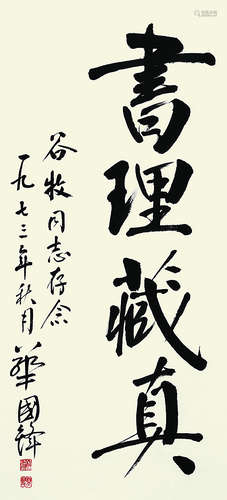 書理藏真
谷牧同志存念
一九七三年秋月 華國鋒